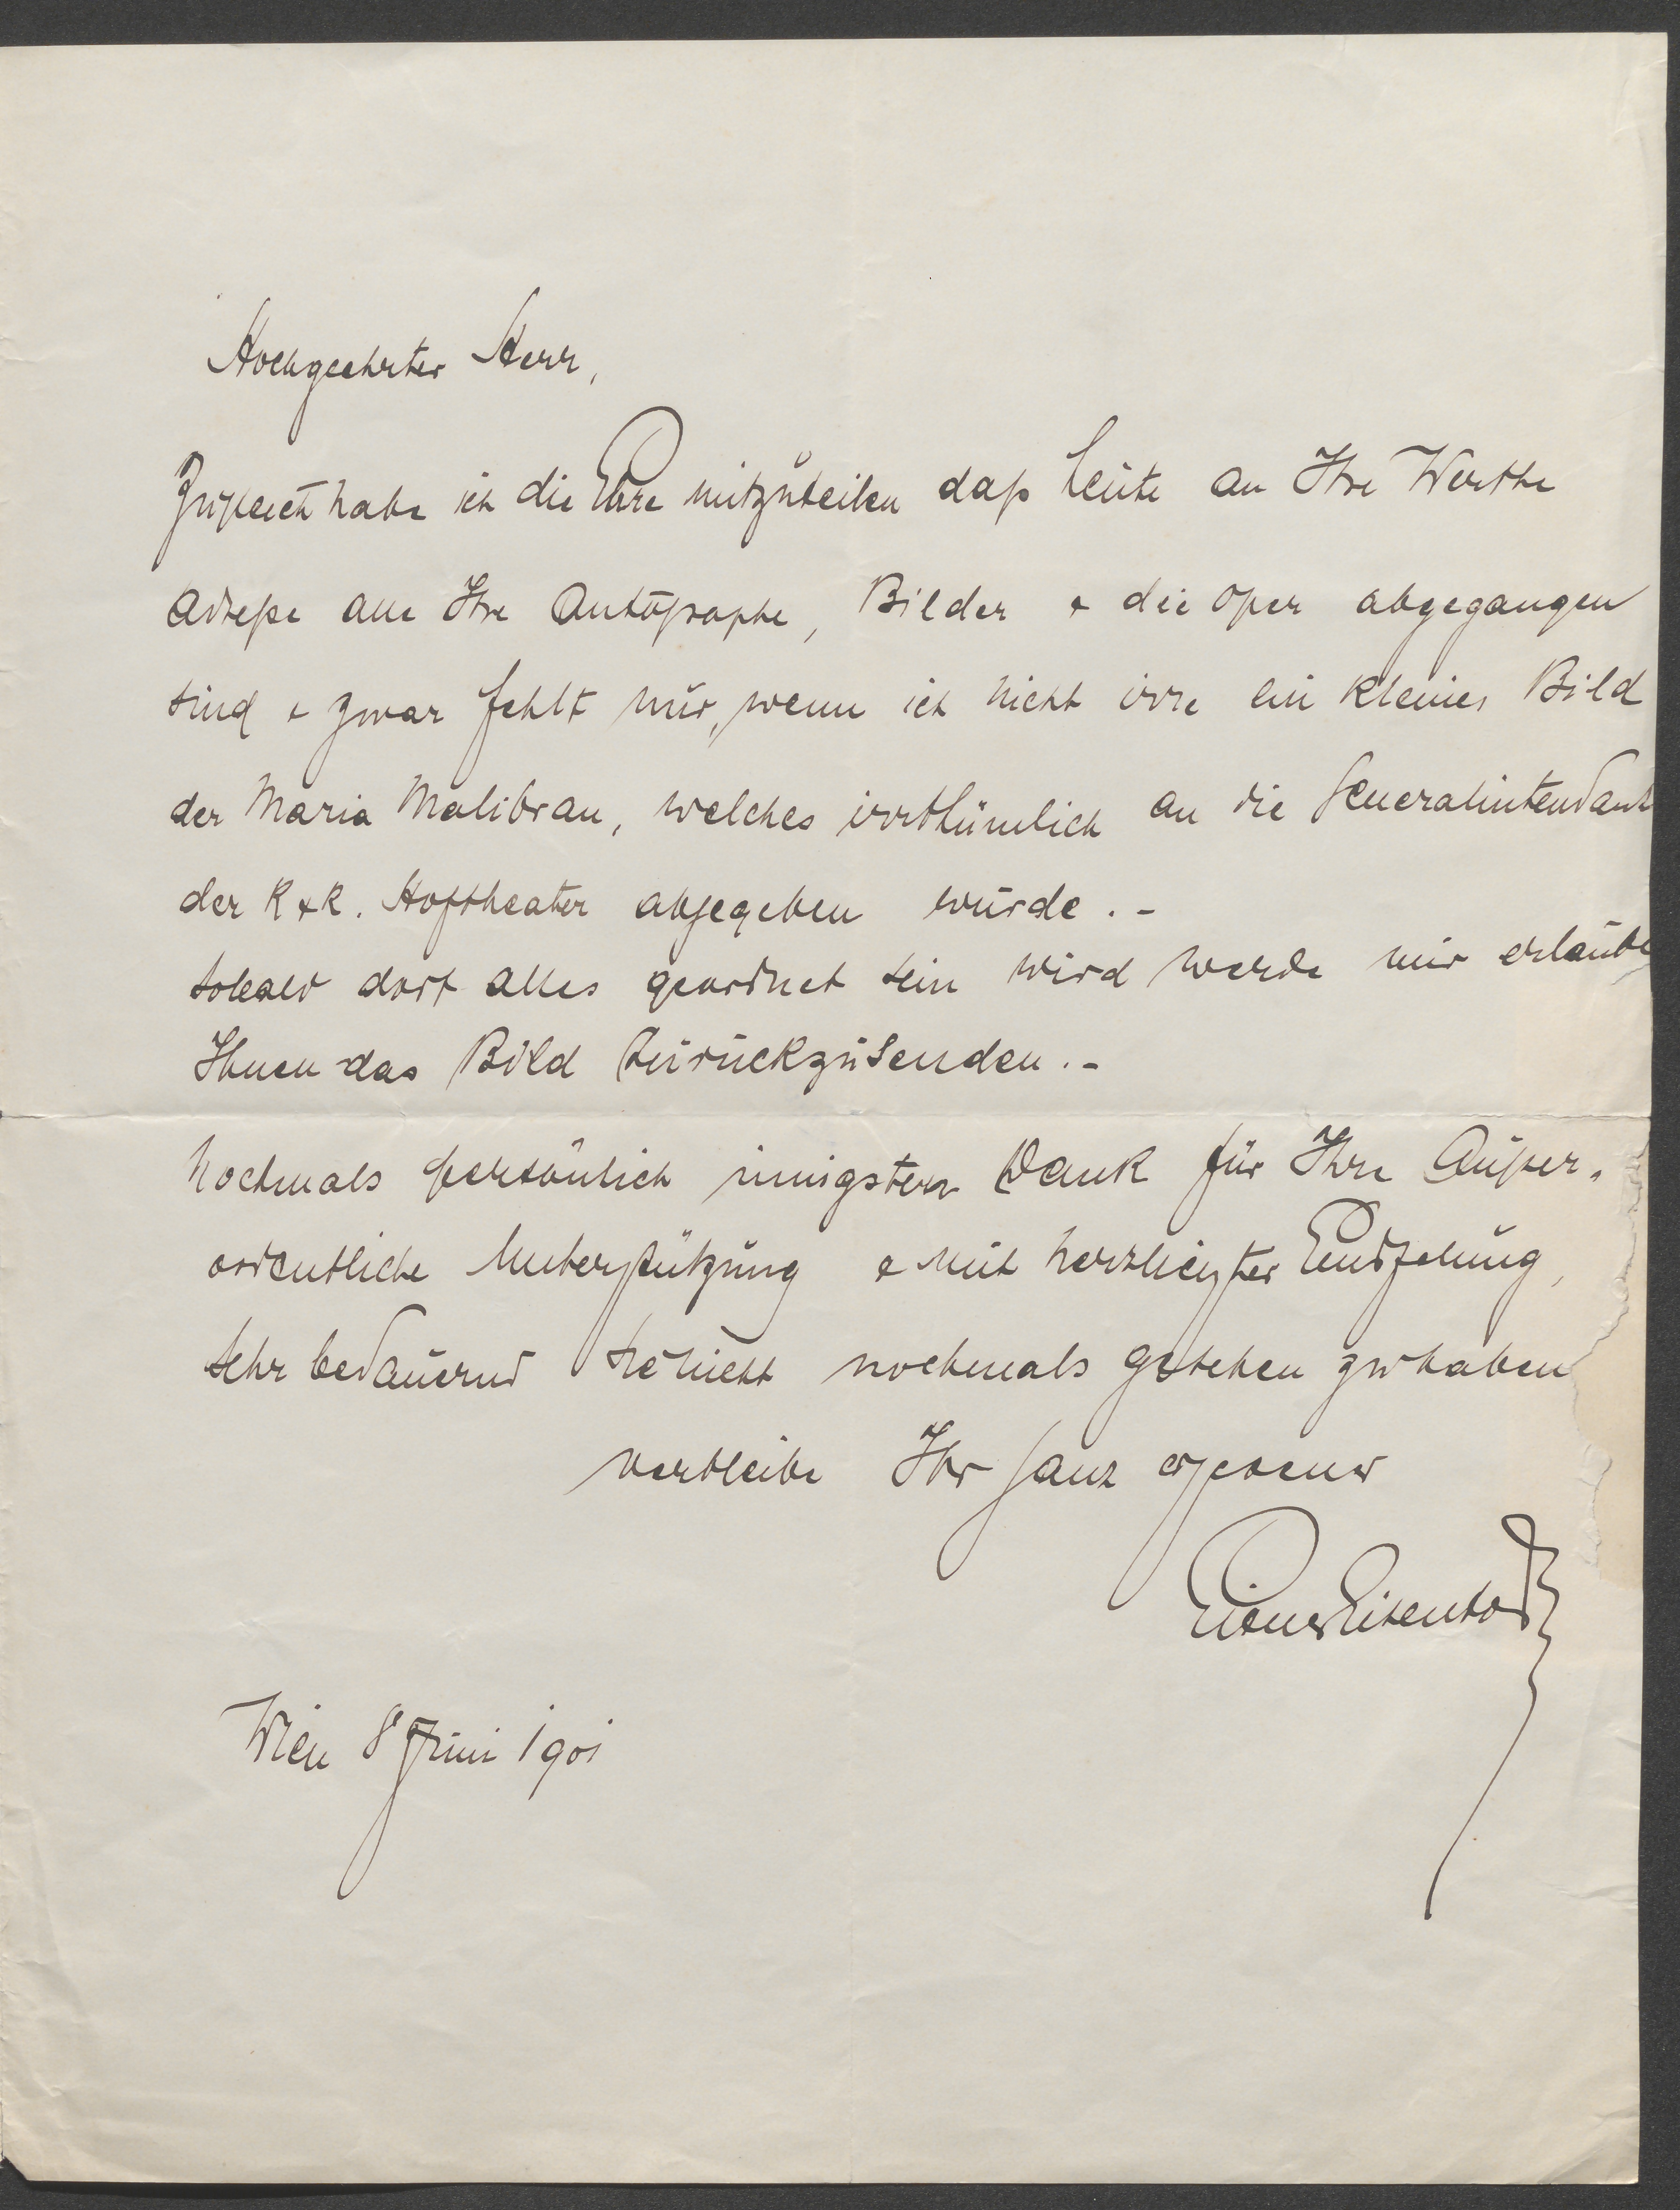 Hochgeehrter Herr,
Zugleich habe ich die Ehre mitzuteilen daß heute an Ihre Werthe
Adreße alle Ihre Autographe, Bilder & die Oper abgegangen
sind & zwar fehlt nur, wenn ich nicht irre ein kleines Bild
der Maria Malibran, welches irrthümlich an die Generalintendanz
der K & K. Hoftheater abgegeben wurde. -
sobald dort alles geordnet sein wird werde mir erlauben
Ihnen das Bild zurückzusenden. -
Nochmals persönlich innigsten Dank für Ihre Außer-
ordentliche Unterstützung & mit herzlichster
sehr bedauernd Sie nicht nochmals gesehen zu haben
verbleibe Ihr ganz ergebener
Wien 8 Juni 1901